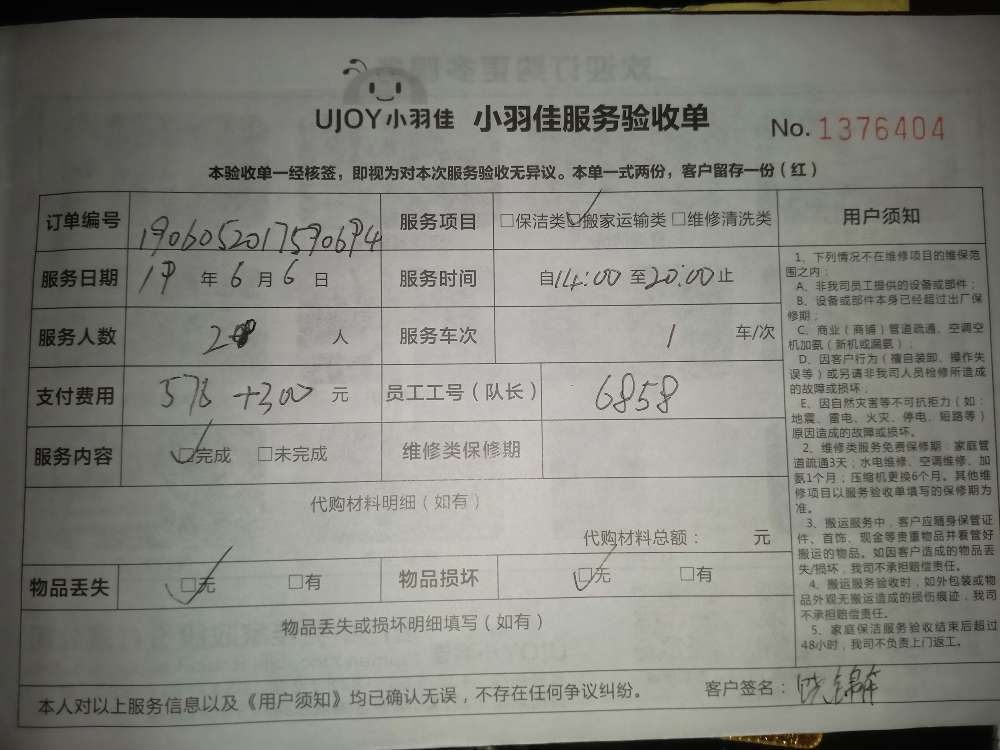 UJOY小羽佳 小羽佳服务验收单 No. 1376404
本验收单一经核签，即视为对本次服务验收无异议。本单一式两份，客户留存一份（红）
订单编号 1906052017590694 服务项目 □保洁类 ☑搬家运输类 □维修清洗类
服务日期 19 年 6 月 6 日 服务时间 自14:00 至20:00止
服务人数 2 人 服务车次 1 车/次
支付费用 576 +300 元 员工工号（队长） 6858
服务内容 ☑完成 □未完成 维修类保修期
代购材料明细（如有）
代购材料总额： 元
物品丢失 ☑无 □有 物品损坏 ☑无 □有
物品丢失或损坏明细填写（如有）
本人对以上服务信息以及《用户须知》均已确认无误，不存在任何争议纠纷。 客户签名：
用户须知
1、下列情况不在维修项目的维保范
围之内：
A、非我司员工提供的设备或部件；
B、设备或部件本身已经超过出厂保
修期；
C、商业（商铺）管道疏通、空调空
机加氨（新机或漏氨）；
D、因客户行为（擅自装卸、操作失
误等）或另请非我司人员检修所造成
的故障或损坏；
E、因自然灾害等不可抗拒力（如：
地震、雷电、火灾、停电、短路等）
原因造成的故障或损坏。
2、维修类服务免费保修期：家庭管
道疏通3天；水电维修、空调维修、加
氨1个月；压缩机更换6个月。其他维
修项目以服务验收单填写的保修期为
准。
3、搬运服务中，客户应随身保管证
件、首饰、现金等贵重物品并看管好
搬运的物品。如因客户造成的物品丢
失/损坏，我司不承担赔偿责任。
4、搬运服务验收时，如外包装或物
品外观无搬运造成的损伤痕迹，我司
不承担赔偿责任。
5、家庭保洁服务验收结束后超过
48小时，我司不负责上门返工。